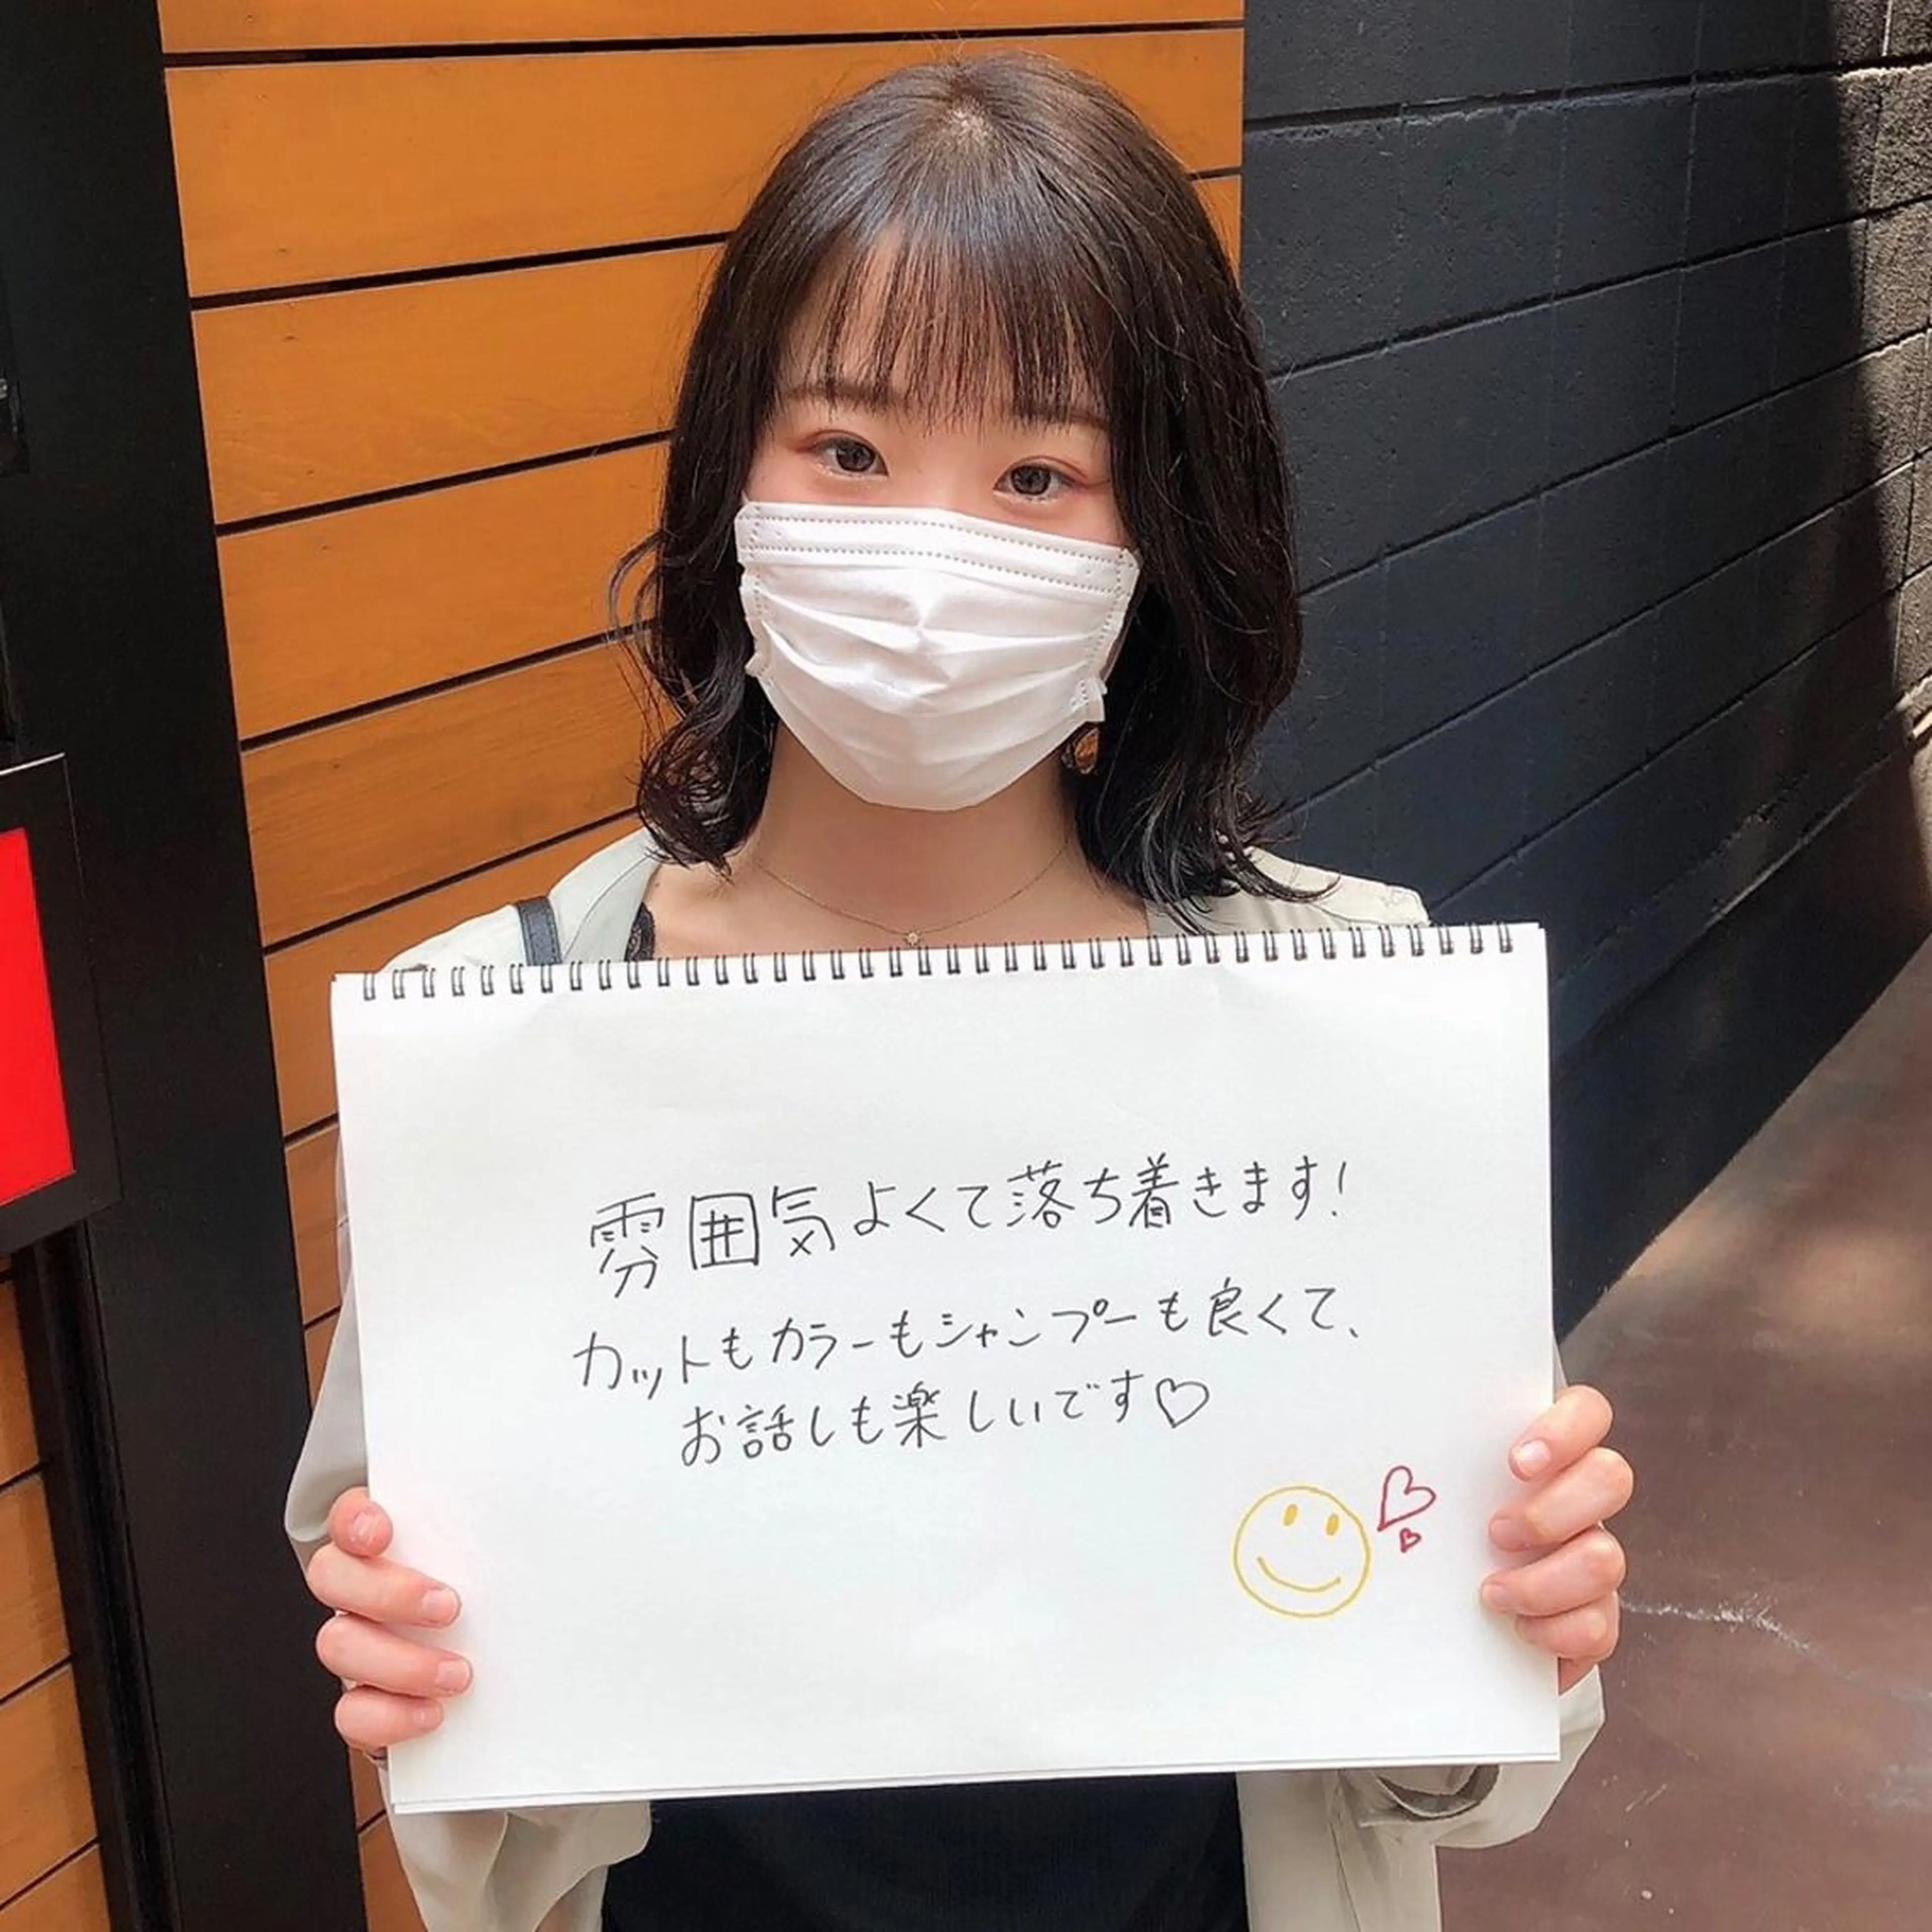 雰囲気よくて落ち着きます!
カットもカラーもシャンプーも良くて、
お話しも楽しいです♡